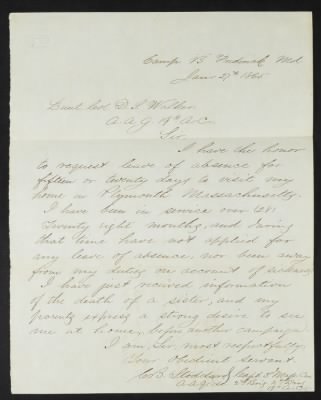 Camp B Frederick Md
Jany 27th 1865
Lieut Col D. S. Walker
A.A.G 19th A.C.
Sir
I have the honor
to request leave of absence for
fifteen or twenty days to visit my
home in Plymouth Massachusetts.
I have been in service over
Twenty eight months, and during
that time have not applied for
any leave of absence, nor been away
from my duties on account of sickness
I have just received information
of the death of a sister, and my
parents express a strong desire to see
me at home, before another campaign
I am, Sir, most respectfully
Your Obedient Servant
C B. Stoddard Capt 3d Mass
A.A.Q.M. 2d Brig 2d
19th